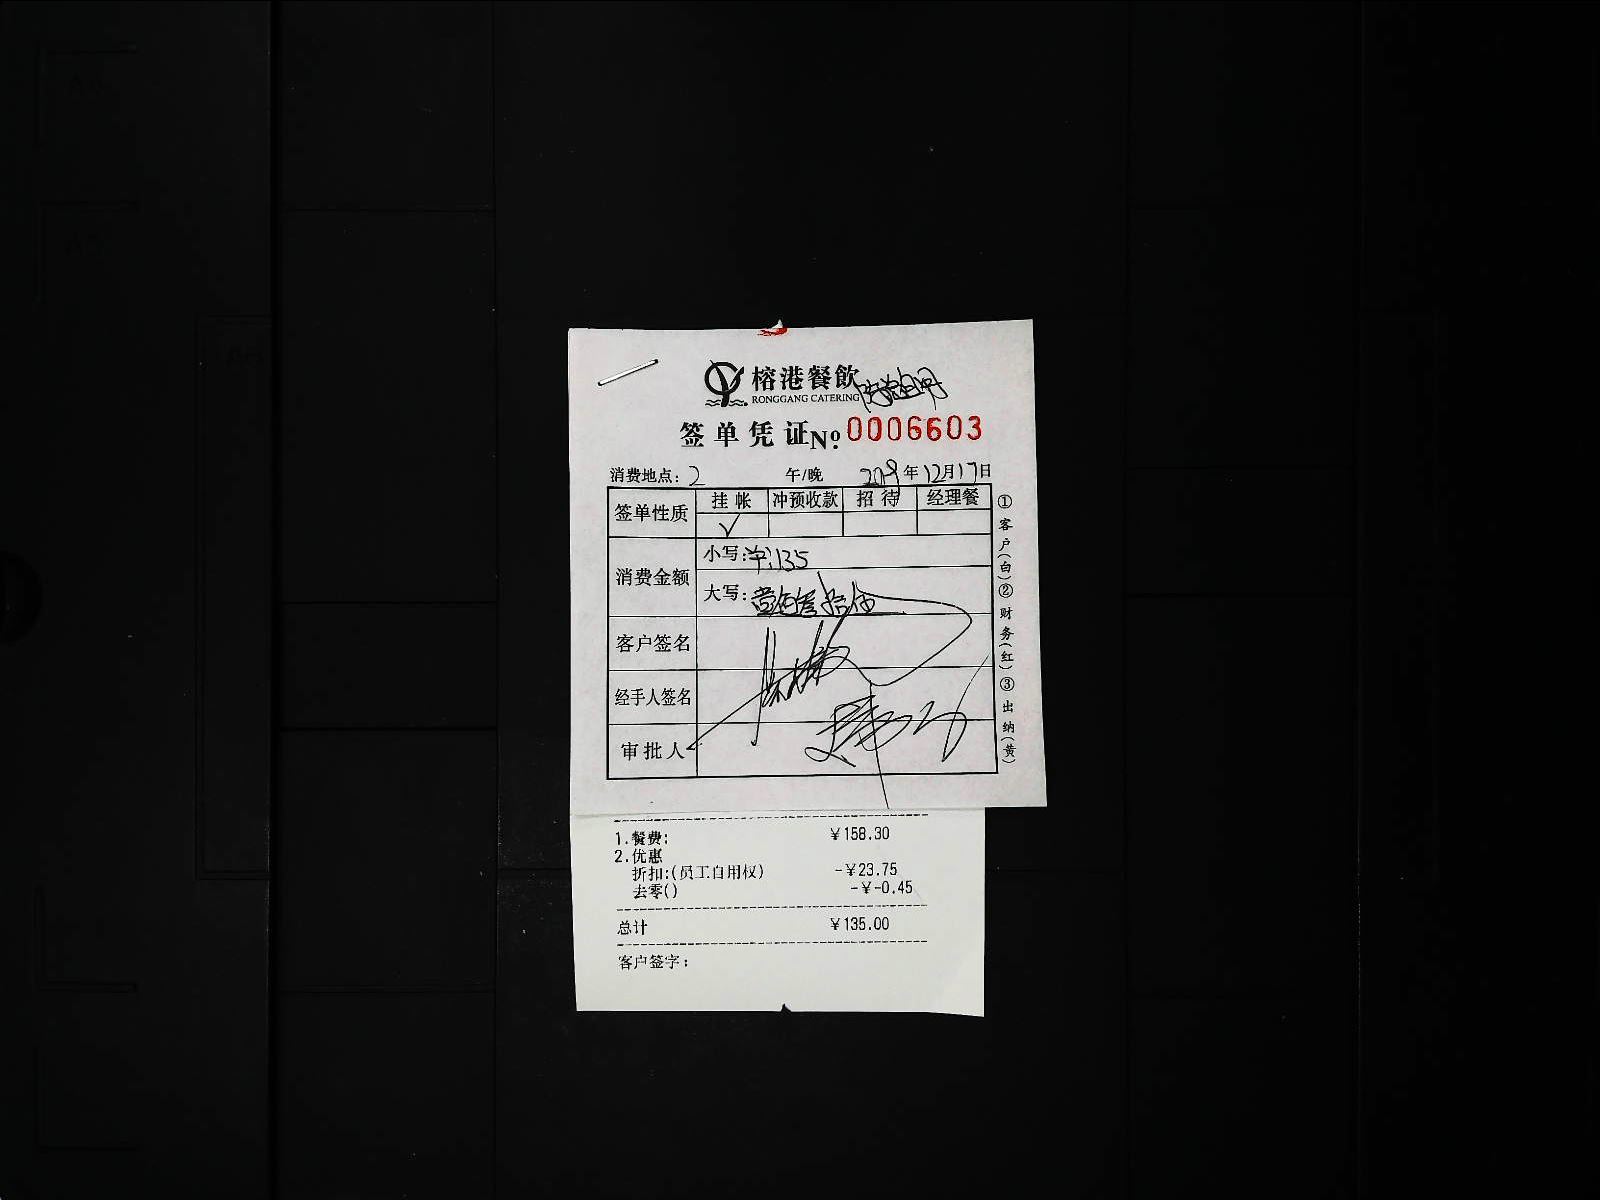 榕港餐飲
RONGGANG CATERING
签单凭证 No: 0006603
消费地点: 2 午/晚 2019年12月17日
签单性质 挂帐 冲预收款 招待 经理餐
√
消费金额 小写: ¥:135
大写: 壹佰叁拾伍
客户签名
经手人签名
审批人
①客户(白)②财务(红)③出纳(黄)
1.餐费: ¥158.30
2.优惠
折扣:(员工自用权) -¥23.75
去零() -¥-0.45
总计 ¥135.00
客户签字: